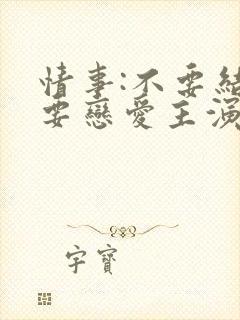 情事:不要結
要戀愛主演
字寶